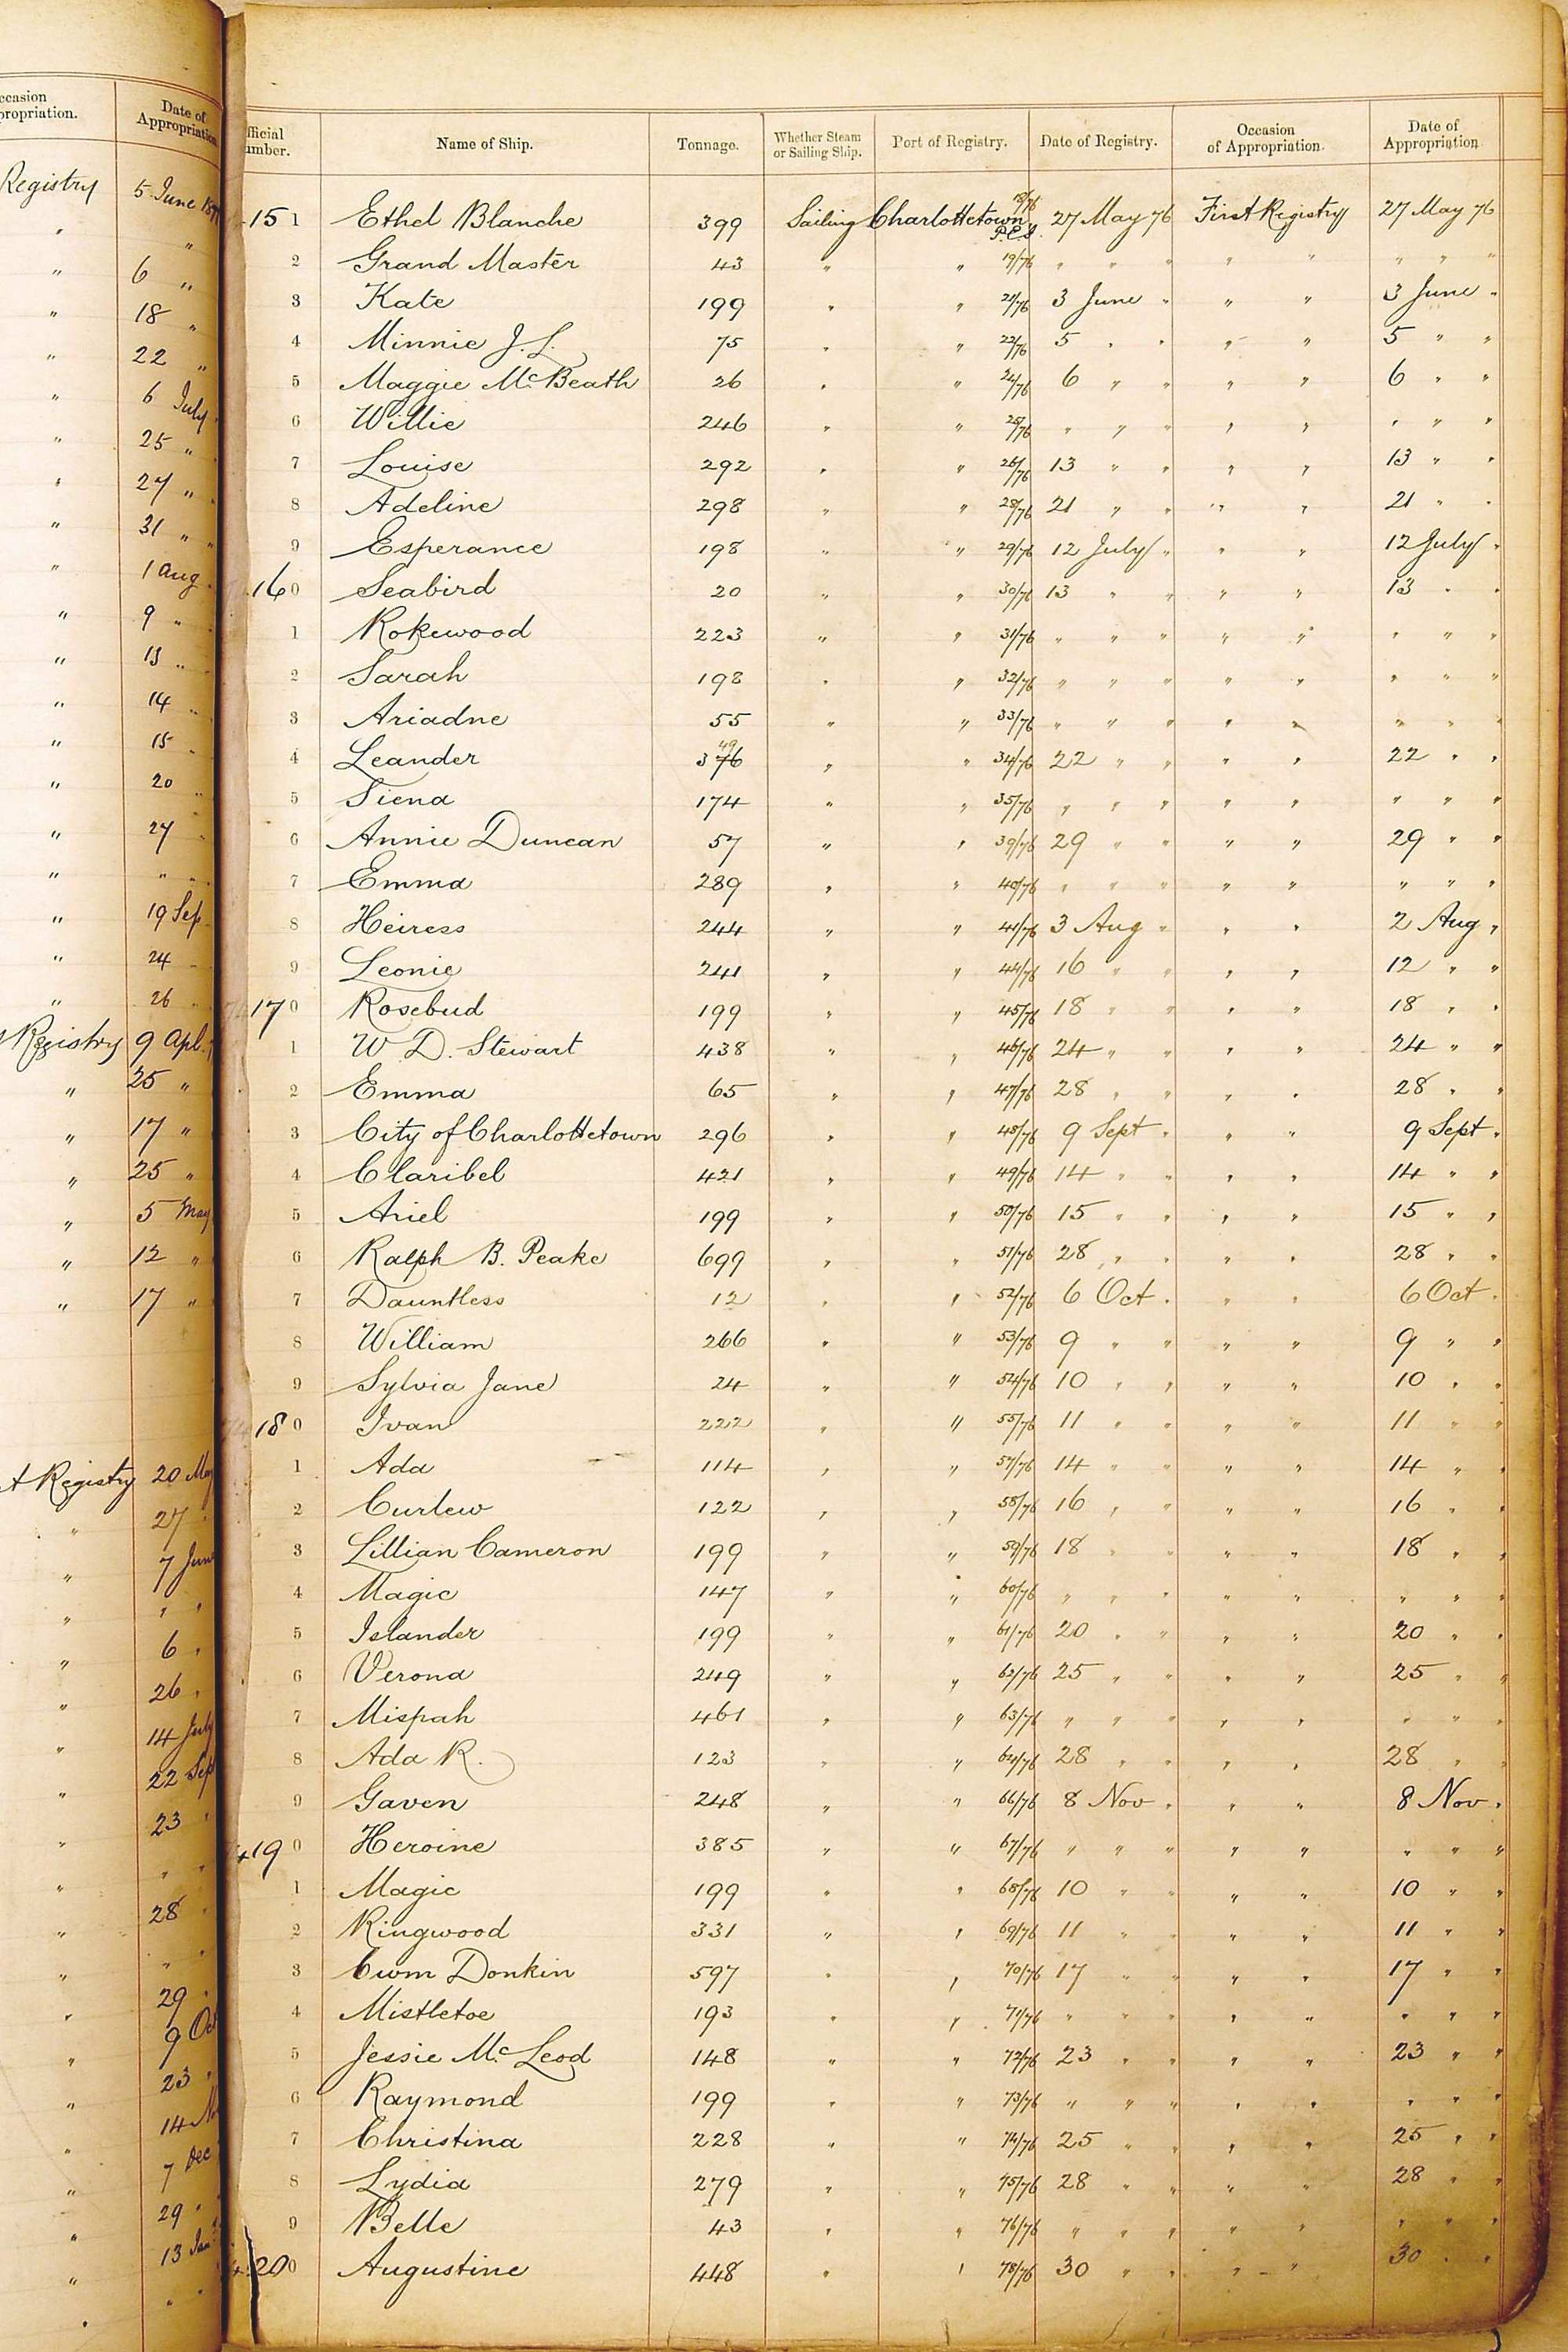 Occasion
Appropriation.
Date of
Appropriation
Registry 5 June
" "
" 6 "
" 18 "
" 22 "
" 6 July
" 25 "
" 27 "
" 31 " "
" 1 Aug
" 9 "
" 13 "
" 14 "
" 15
" 20
" 27
" " "
" 19 Sep
" 24
" 26
Registry 9 Apl.
" 25 "
" 17 "
" 25 "
" 5 May
" 12 "
" 17 "
Registry 20 May
" 27
" 7 June
" " "
" 6 "
" 26 "
" 14 July
" 22 Sep
" 23 "
" " "
" 28 "
" " "
" 29 "
" 9 Oct
" 23 "
" 14 No
" 7 Dec
" 29 "
" 13 Jan
" " "
Official
Number.
Name of Ship.
Tonnage.
Whether Steam
or Sailing Ship.
Port of Registry.
Date of Registry.
Occasion
of Appropriation.
Date of
Appropriation
151 Ethel Blanche 399 Sailing Charlottetown P.E.I. 18/76 27 May 76 First Registry 27 May 76
2 Grand Master 43 " " 19/76 " " " " " " " "
3 Kate 199 " " 21/76 3 June " " " 3 June "
4 Minnie J. L. 75 " " 22/76 5 " " " " 5 " "
5 Maggie McBeath 26 " " 24/76 6 " " " " 6 " "
6 Willie 246 " " 25/76 " " " " " " " "
7 Louise 292 " " 26/76 13 " " " " 13 " "
8 Adeline 298 " " 28/76 21 " " " " 21 " "
9 Esperance 198 " " 29/76 12 July " " " 12 July "
160 Seabird 20 " " 30/76 13 " " " " 13 " "
1 Rokewood 223 " " 31/76 " " " " " " " "
2 Sarah 198 " " 32/76 " " " " " " " "
3 Ariadne 55 " " 33/76 " " " " " " " "
4 Leander 376 49 " " 34/76 22 " " " " 22 " "
5 Siena 174 " " 35/76 " " " " " " " "
6 Annie Duncan 57 " " 39/76 29 " " " " 29 " "
7 Emma 289 " " 40/76 " " " " " " " "
8 Heiress 244 " " 41/76 3 Aug " " " 2 Aug "
9 Leonie 241 " " 44/76 16 " " " " 12 " "
170 Rosebud 199 " " 45/76 18 " " " " 18 " "
1 W D. Stewart 438 " " 46/76 24 " " " " 24 " "
2 Emma 65 " " 47/76 28 " " " " 28 " "
3 City of Charlottetown 296 " " 48/76 9 Sept " " " 9 Sept "
4 Claribel 421 " " 49/76 14 " " " " 14 " "
5 Ariel 199 " " 50/76 15 " " " " 15 " "
6 Ralph B. Peake 699 " " 51/76 28 " " " " 28 " "
7 Dauntless 12 " " 52/76 6 Oct " " " 6 Oct "
8 William 266 " " 53/76 9 " " " " 9 " "
9 Sylvia Jane 24 " " 54/76 10 " " " " 10 " "
180 Ivan 222 " " 55/76 11 " " " " 11 " "
1 Ada 114 " " 57/76 14 " " " " 14 " "
2 Curlew 122 " " 58/76 16 " " " " 16 " "
3 Lillian Cameron 199 " " 59/76 18 " " " " 18 " "
4 Magic 147 " " 60/76 " " " " " " " "
5 Islander 199 " " 61/76 20 " " " " 20 " "
6 Verona 249 " " 62/76 25 " " " " 25 " "
7 Mispah 461 " " 63/76 " " " " " " " "
8 Ada R. 123 " " 64/76 28 " " " " 28 " "
9 Gaven 248 " " 66/76 8 Nov " " " 8 Nov "
190 Heroine 385 " " 67/76 " " " " " " " "
1 Magic 199 " " 68/76 10 " " " " 10 " "
2 Ringwood 331 " " 69/76 11 " " " " 11 " "
3 Cwm Donkin 597 " " 70/76 17 " " " " 17 " "
4 Mistletoe 193 " " 71/76 " " " " " " " "
5 Jessie McLeod 148 " " 72/76 23 " " " " 23 " "
6 Raymond 199 " " 73/76 " " " " " " " "
7 Christina 228 " " 74/76 25 " " " " 25 " "
8 Lydia 279 " " 75/76 28 " " " " 28 " "
9 Belle 43 " " 76/76 " " " " " " " "
200 Augustine 448 " " 78/76 30 " " " " 30 " "